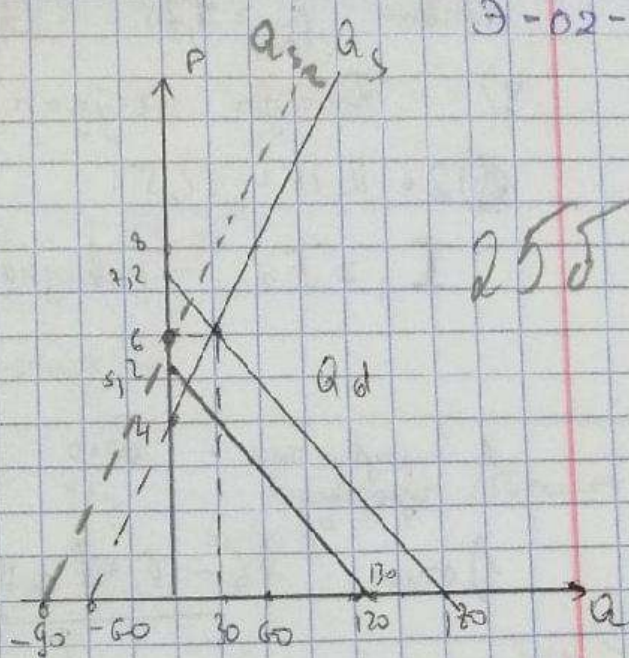 Э-02-
P
Qs₂ Qs
8
7,2
25б
6
5,2
Qd
4
130
-90 -60 30 60 120 180 Q